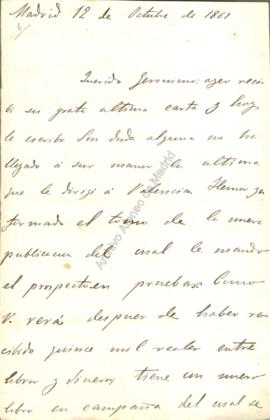 Madrid 12 de Octubre de 1868
Querido Jeronimo: ayer reci
bi su grata ultima carta y hoy
le escribo. Sin duda alguna no ha
llegado á sus manos la ultima
que le dirigi á Valencia. Hemos ya
formado el tomo de la nueva
publicacion del cual le mando
el prospecto en pruebas. Como
V. verá despues de haber re
cibido quince mil reales entre
libros y dineros tiene un nuevo
libro en campaña del cual se
Archivo Ateneo de Madrid